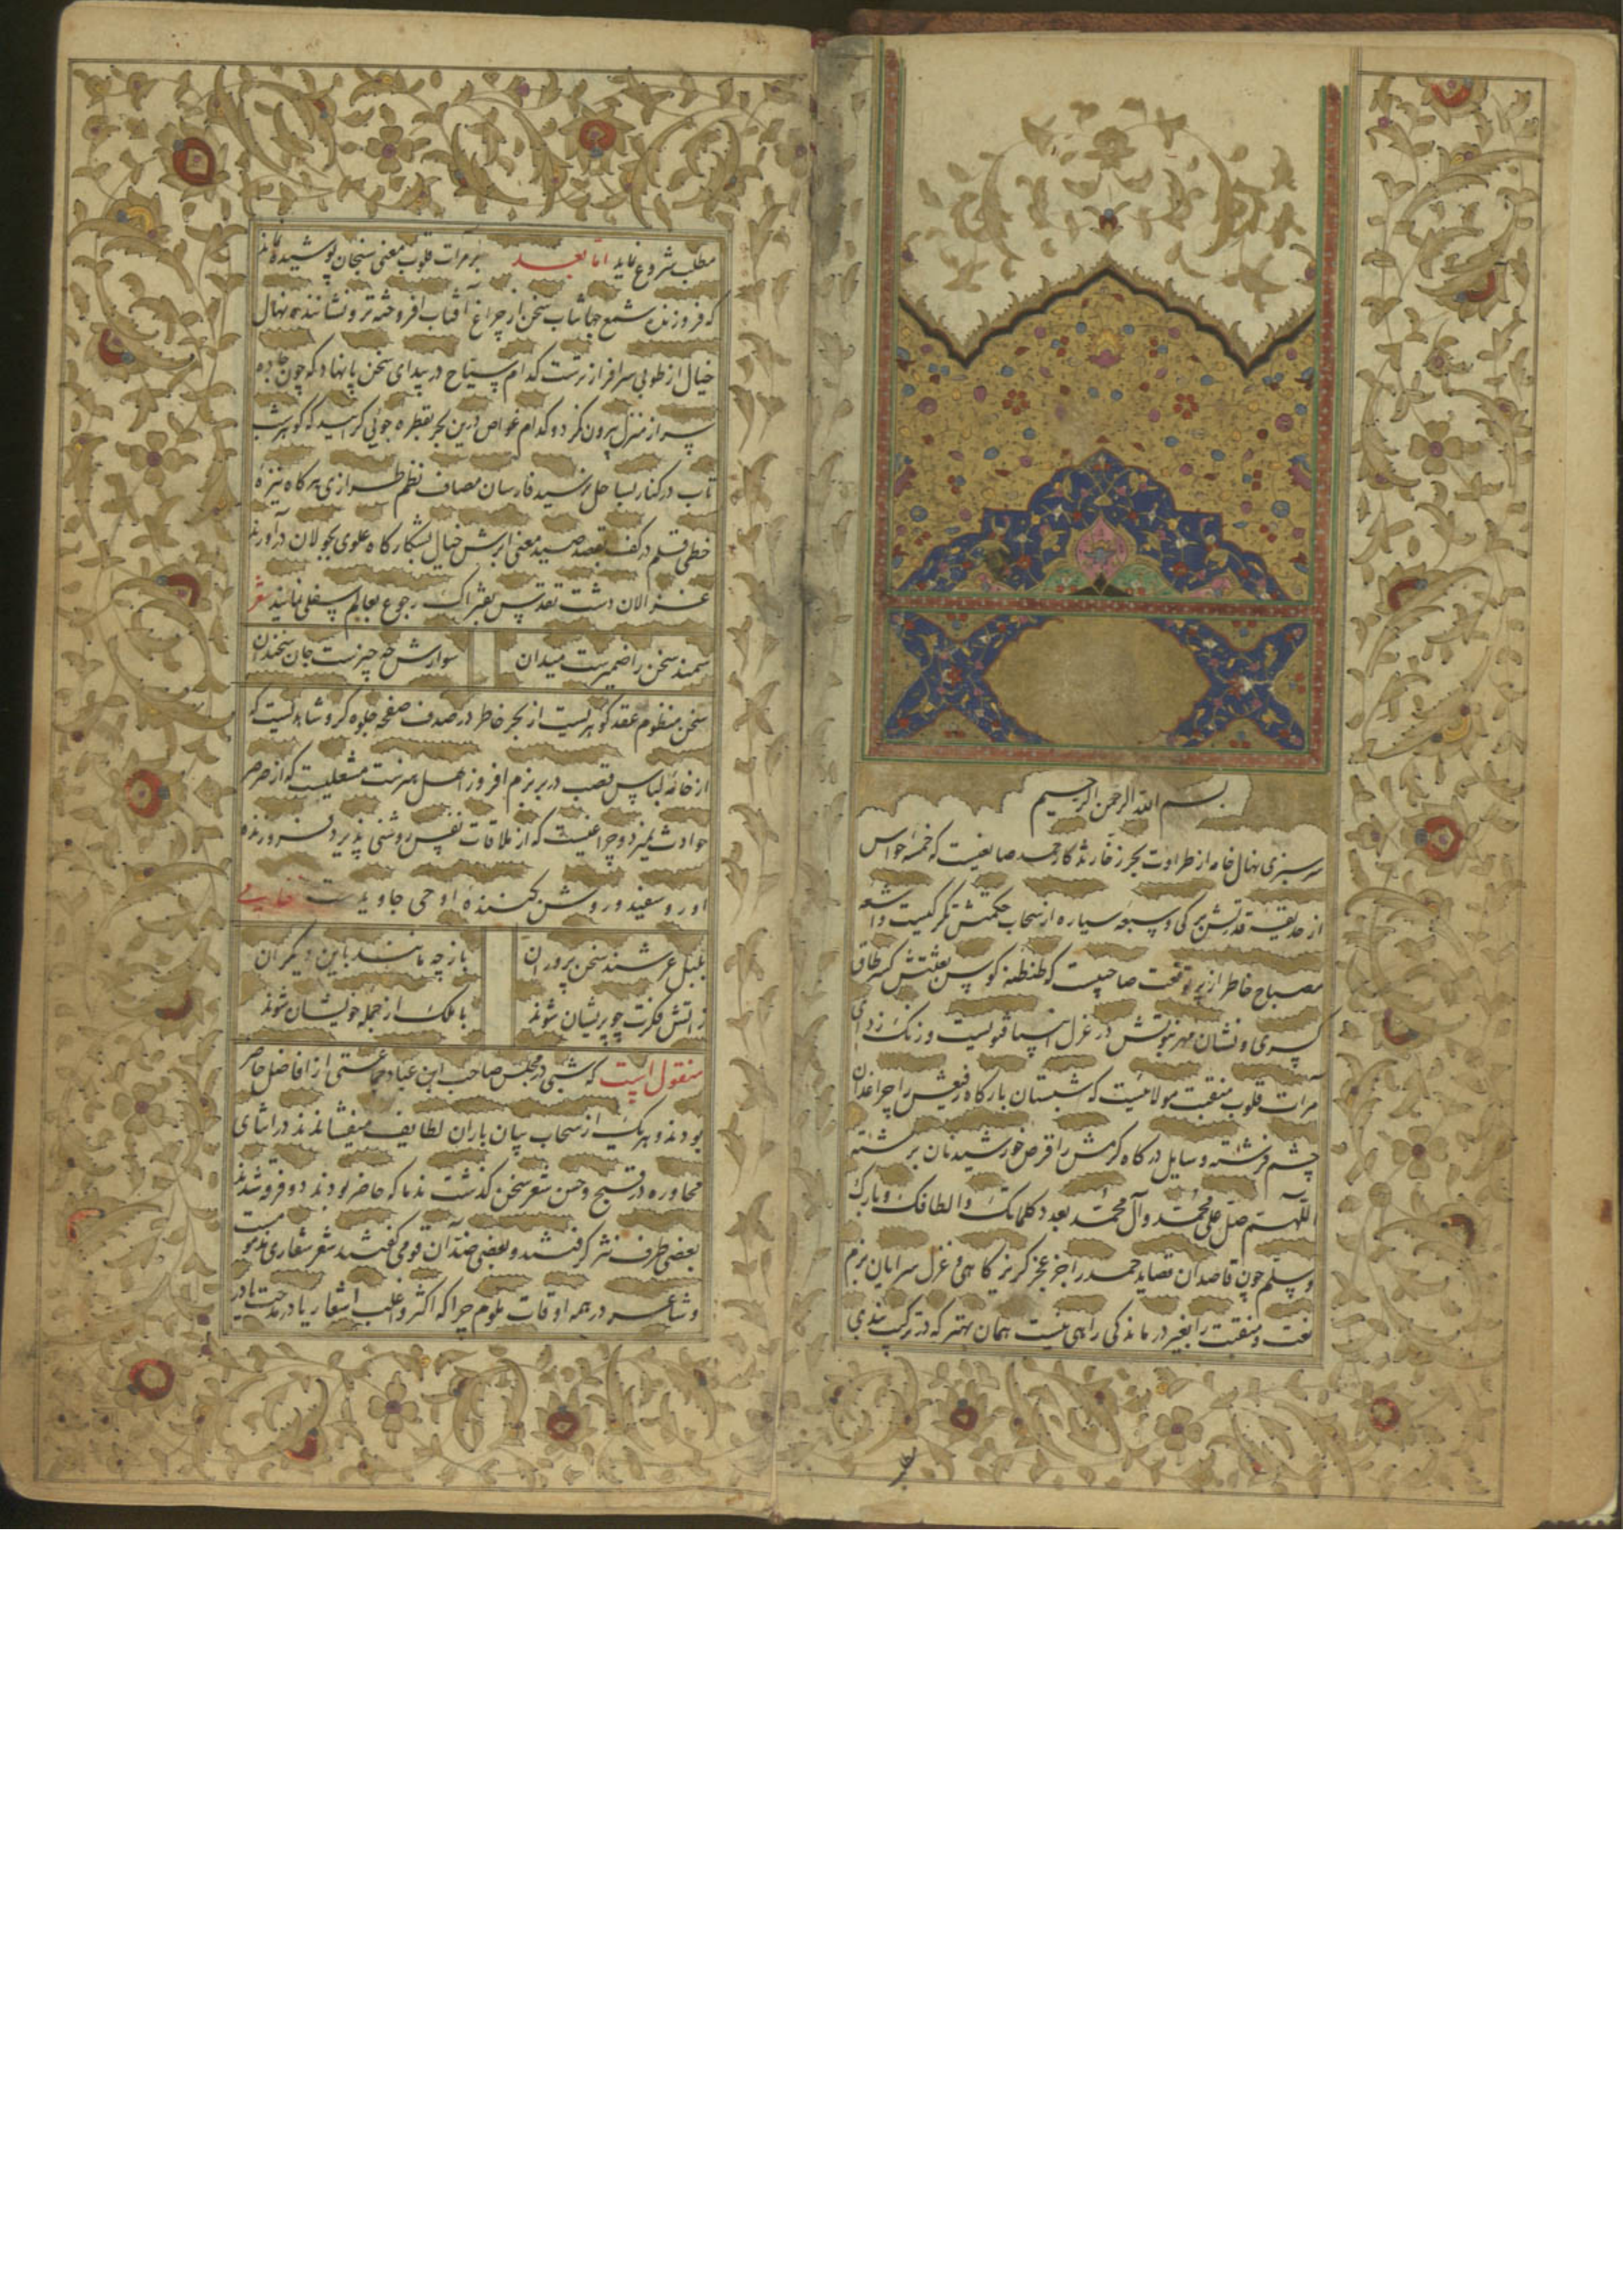 بسم الله الرحمن الرحیم
سرسبزی نهال خامه از طراوت بحر زخار نگار حمد صانعیست که خمسه حواس
از حدیقه قدرتش برکی و سبعه سیاره از سحاب حکمتش تکرکیست و اشعه
مصباح خاطر از پرتو نعت صاحبیست که طنطنه کوس بعثتش کسر طاق
کسری و نشان مهر نبوتش در عزل انبیا قولیست و زنک زدای
مرآت قلوب منقبت مولائیست که شبستان بارکاه رفیعش را چراغدان
چشم فرشته و سایل درکاه کرمش را قرص خورشید نان برشته
اللهم صل علی محمد و آل محمد بعدد کلماتک و الطافک و بارک
وسلم چون قاصدان قصاید حمد را جز عجز کریزکاهی و غزل سرایان بزم
نعت و منقبت را بغیر درماندکی راهی نیست همان بهتر که در ترکیب بندی
مطلب شروع نماید اما بعد بر مرآت قلوب معنی سنجان پوشیده نماند
که فروزنده شمع جهانتاب سخن از چراغ آفتاب افروخته تر و نشاننده نهال
خیال از طوبی سرافرازترست کدام سیاح در بیدای سخن پا نهاد که چون جاده
سر از منزل برون نکرد و کدام غواص درین بحر بقطره جوئی کرائید که کوهر شب
تاب در کنار بساحل نرسید فارسان مصاف نظم طرازی هرکاه نیزه
خطی قلم در کف بقصد صید معنی ابرش خیال بشکارکاه علوی بجولان درآورند
غزالان دشت تقدیس بفتراک رجوع بعالم سفلی نمایند شعر
سمند سخن را ضمیرست میدان سوارش چه چیزست جان سخندان
سخن منظوم عقد کوهریست از بحر خاطر در صدف صفحه جلوه کر و شاهدیست که
از خانه لباس قصب در بر بزم افروز اهل هنرست مشعلیست که از صرصر
حوادث نمیرد و چراغیست که از ملاقات نفس روشنی پذیرد فروزنده
او رو سفید و روشن کننده او حی جاویدست نظامی
بلبل عرشند سخن پروران باز چه مانند باین دیکران
ز آتش فکرت چو پریشان شوند با ملک از جمله خویشان شوند
منقول است که شبی در مجلس صاحب ابن عباد جماعتی از افاضل حاضر
بودند و هریک از سحاب بیان باران لطایف میفشاندند در اثنای
محاوره در قبح و حسن شعر سخن کذشت ندما که حاضر بودند دو فرقه شدند
بعضی طرف نثر کرفتند و بعضی ضد آن قومی کفتند شعر شعاری مذمومست
و شاعر در همه اوقات ملوم چرا که اکثر و اغلب اشعار یا در مدحست یا در